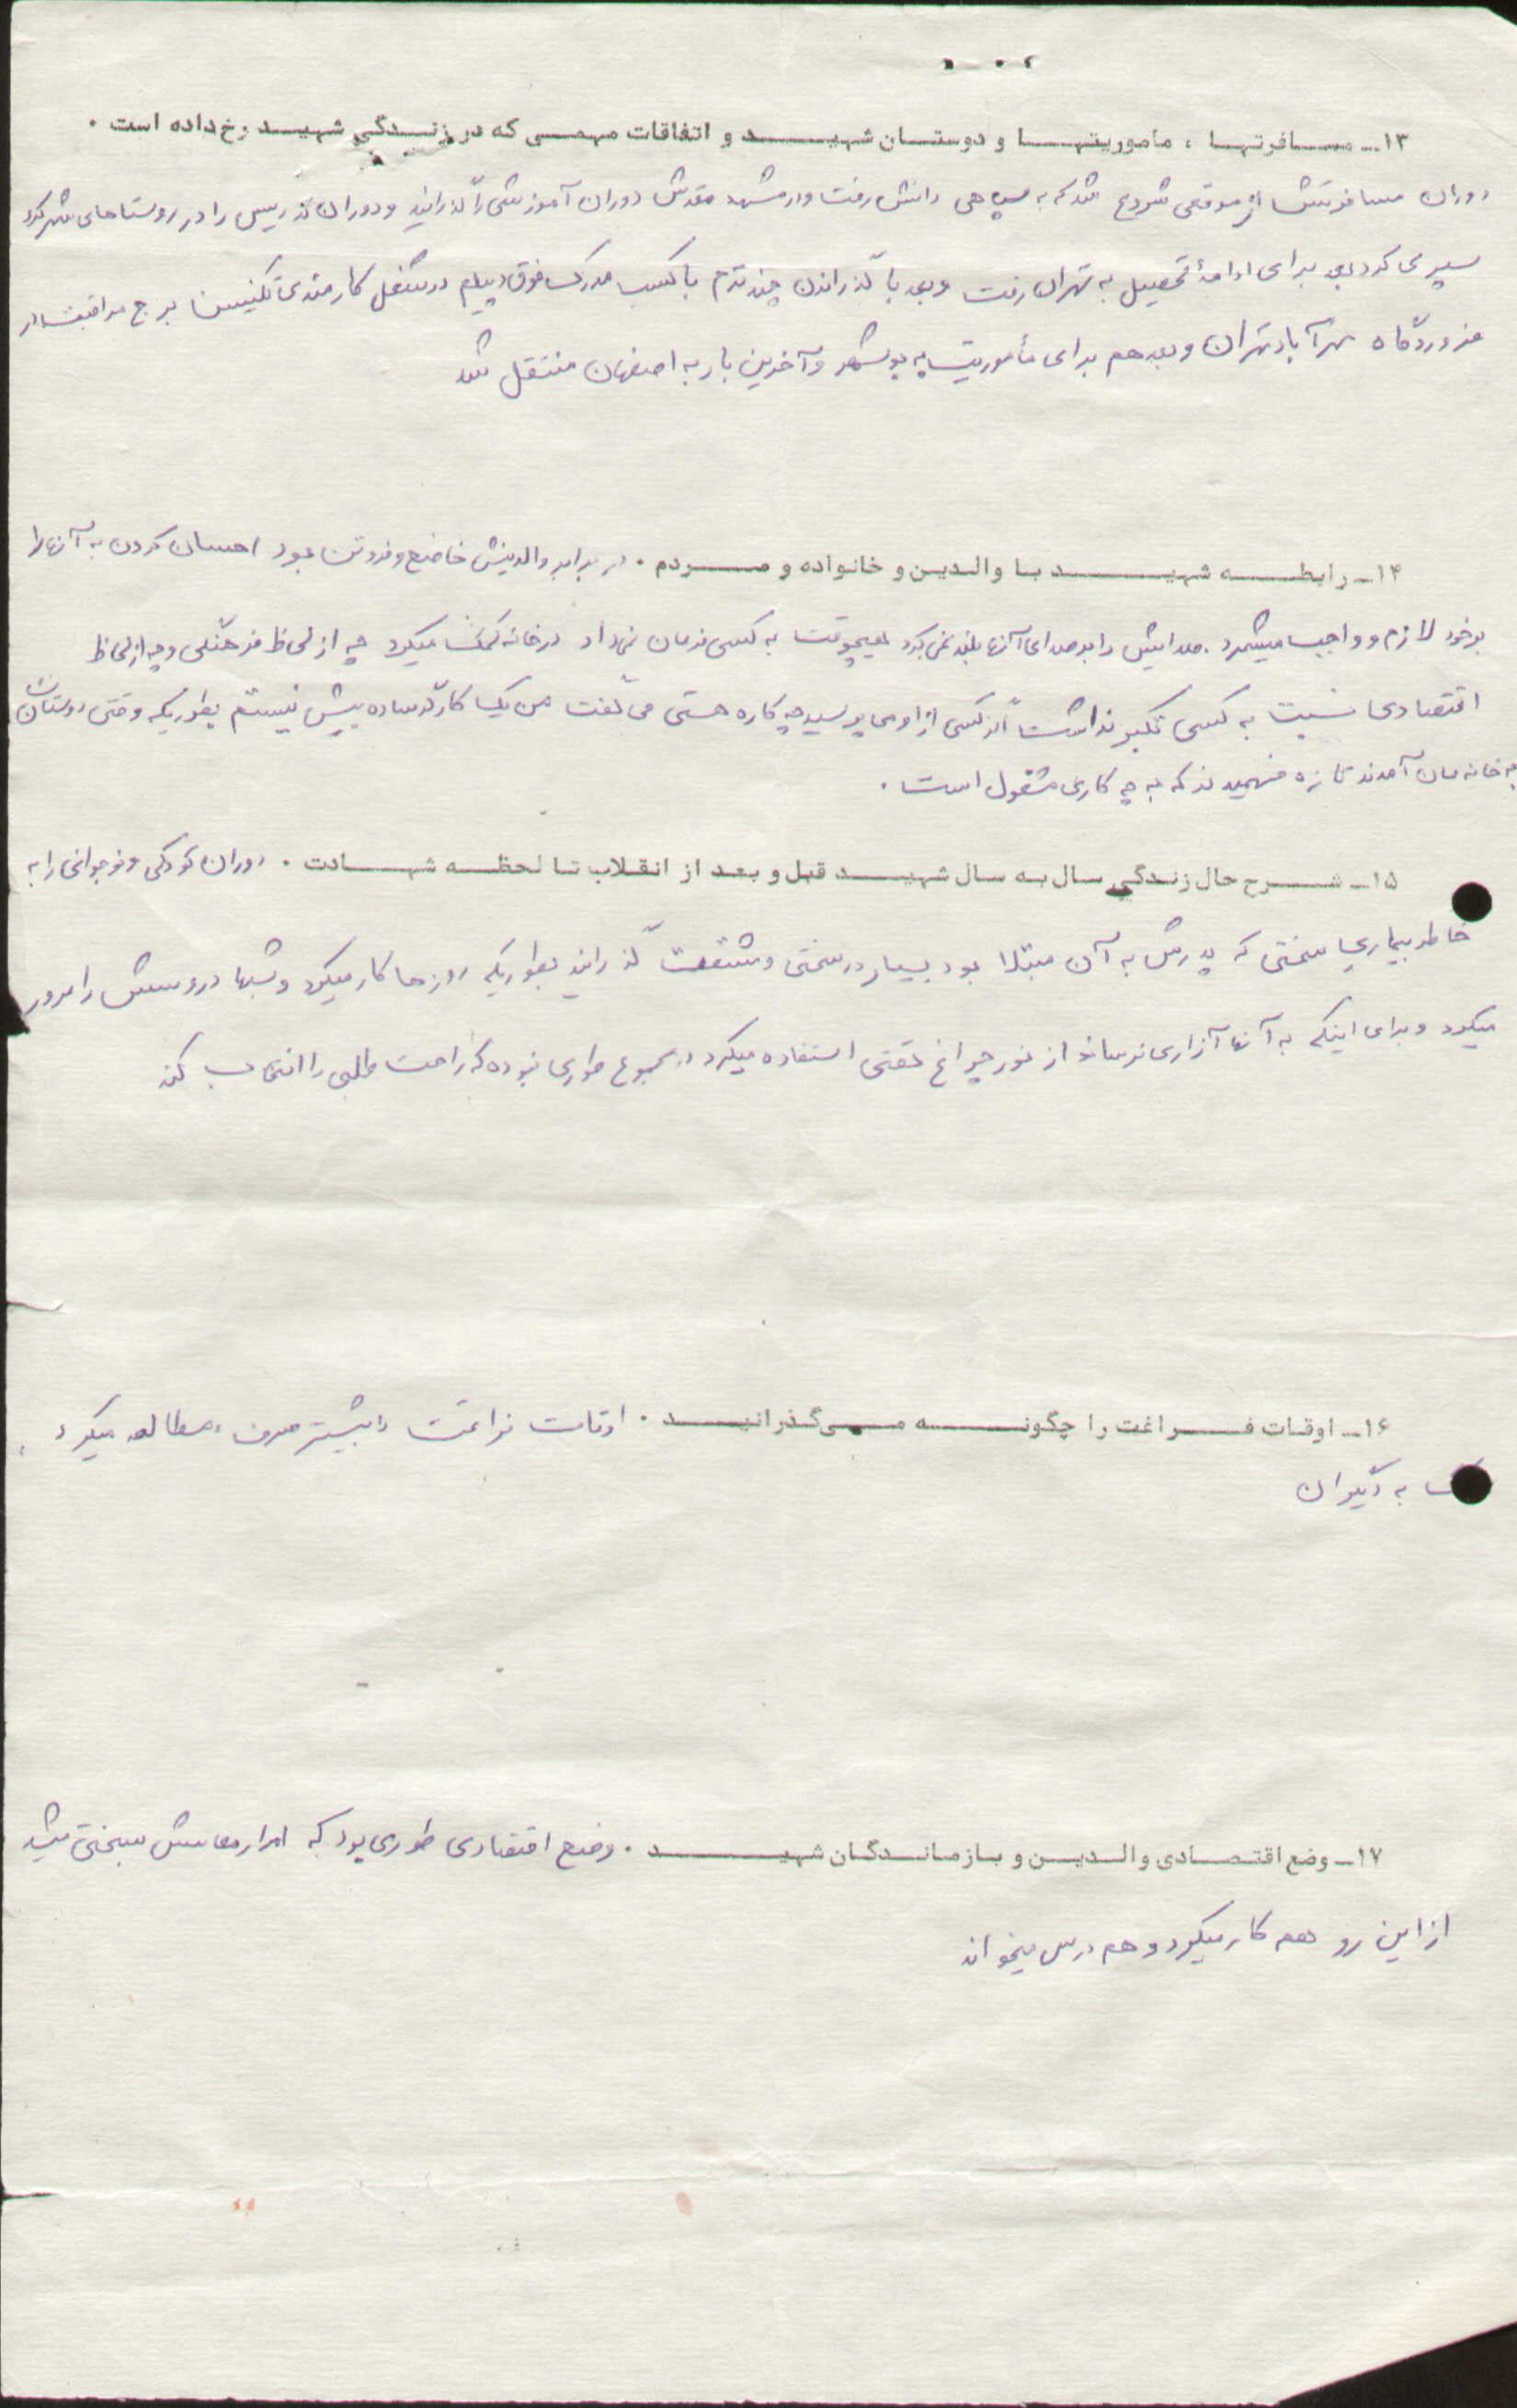 ۱۳ـ مسافرتها ، ماموریتها و دوستان شهید و اتفاقات مهمی که در زندگی شهید رخ داده است .
دوران مسافرتش از موقعی شروع شد که به سپاهی دانش رفت و در مشهد مقدس دوران آموزشی را گذرانید و دوران تدریس را در روستاهای شهرکرد
سپری کرد بعد برای ادامهٔ تحصیل به تهران رفت و بعد با گذراندن چند ترم با کسب مدرک فوق دیپلم در شغل کارمندی تکنیسن برج مراقبت در
فرودگاه مهرآباد تهران و بعد هم برای مأموریت به بوشهر و آخرین بار به اصفهان منتقل شد
۱۴ـ رابطه شهید با والدین و خانواده و مردم . در برابر والدینش خاضع و فروتن بود احسان کردن به آنها را
بر خود لازم و واجب میشمرد . صدایش را بر صدای آنها بلند نمی کرد هیچوقت به کسی فرمان نمی داد در خانه کمک میکرد چه از لحاظ فرهنگی و چه از لحاظ
اقتصادی نسبت به کسی تکبر نداشت اگر کسی از او می پرسید چه کاره هستی می گفت من یک کارگر ساده بیش نیستم بطوریکه وقتی دوستانش
به خانه مان آمدند تازه فهمیدند که به چه کاری مشغول است .
۱۵ـ شرح حال زندگی سال به سال شهید قبل و بعد از انقلاب تا لحظه شهادت . دوران کودکی و نوجوانی را به
خاطر بیماری سختی که پدرش به آن مبتلا بود بسیار در سختی و مشقت گذرانید بطوریکه روزها کار میکرد و شبها دروسش را مرور
میکرد و برای اینکه به آنها آزاری نرساند از نور چراغ استفاده میکرد در مجموع طوری نبوده که راحت طلبی را انتخاب کند
۱۶ـ اوقات فراغت را چگونه می گذرانید . اوقات فراغت را بیشتر صرف مطالعه میکرد و
به دیگران
۱۷ـ وضع اقتصادی والدین و بازماندگان شهید . وضع اقتصادی طوری بود که امرار معاش بسختی میشد
از این رو هم کار میکرد و هم درس میخواند